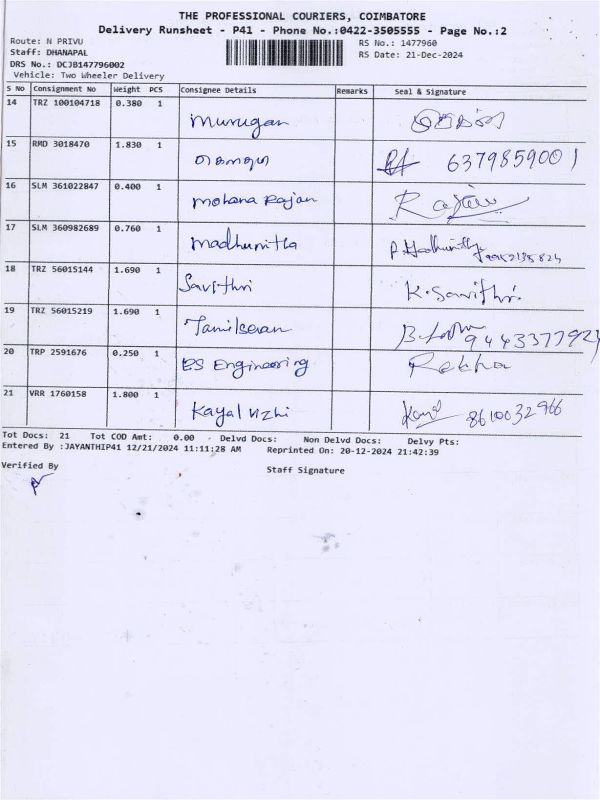 THE PROFESSIONAL COURIERS, COIMBATORE
Delivery Runsheet - P41 - Phone No.:0422-3505555 - Page No.:2
Route: N PRIVU
RS No.: 1477960
Staff: DHANAPAL
RS Date: 21-Dec-2024
DRS No.: DCJB147796002
Vehicle: Two Wheeler Delivery
S No Consignment No Weight PCS Consignee Details Remarks Seal & Signature
14 TRZ 100104718 0.380 1 Murugan
15 RMD 3018470 1.830 1 6379859001
16 SLM 361022847 0.400 1 Mohana Rajan Rajan
17 SLM 360982689 0.760 1 Madhumitha P. Madhumitha
18 TRZ 56015144 1.690 1 Savithri K. Savithri
19 TRZ 56015219 1.690 1 Tamilselvan
20 TRP 2591676 0.250 1 ES Engineering Rekha
21 VRR 1760158 1.800 1 Kayal Vizhi 8610032966
Tot Docs: 21 Tot COD Amt: 0.00 Delvd Docs: Non Delvd Docs: Delvy Pts:
Entered By :JAYANTHIP41 12/21/2024 11:11:28 AM Reprinted On: 20-12-2024 21:42:39
Verified By
Staff Signature